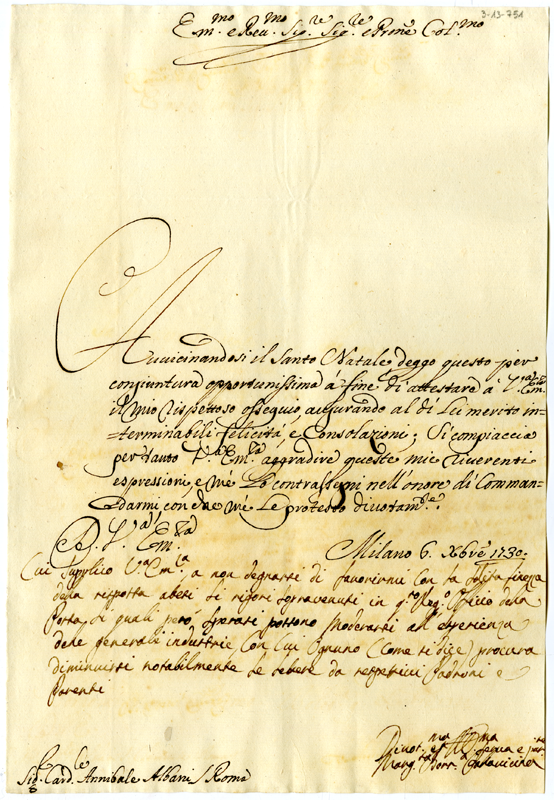 3-13-751
Em.mo e Rev.mo Sig.re Sig.re e Prne Col.mo
Avvicinandosi il Santo Natale deggo questo per
congiuntura opportunissima à fine di attestare à V.ra Em.za
il mio rispettoso ossequio, augurando al di Lei merito in=
=terminabili felicità, e Consolazioni; Si compiaccia
per tanto V.a Em.za aggradire queste mie riverenti
espressioni, e me Lo contrassegni nell'onore di Comman=
darmi con che me Le protesto divotam.te
A. V.a Em.za
Milano 6. Xbre 1730.
Cui supplico V.a Em.za, a non degnarsi di favorirmi con la solita finezza
della risposta atesi li rigori sopravenuti in q.to Reg.o Officio della
Posta, li quali però sperasi possono moderarsi all'esperienza
delle generale industrie con cui Ognuno (come si dice) procura
diminuirsi notabilmente le lettere da rispettivi Padroni e
Parenti
Divot.ma et Obb.ma Serva e
Marg.ta Pallavicina
Sig.r Card.le Annibale Albani / Roma